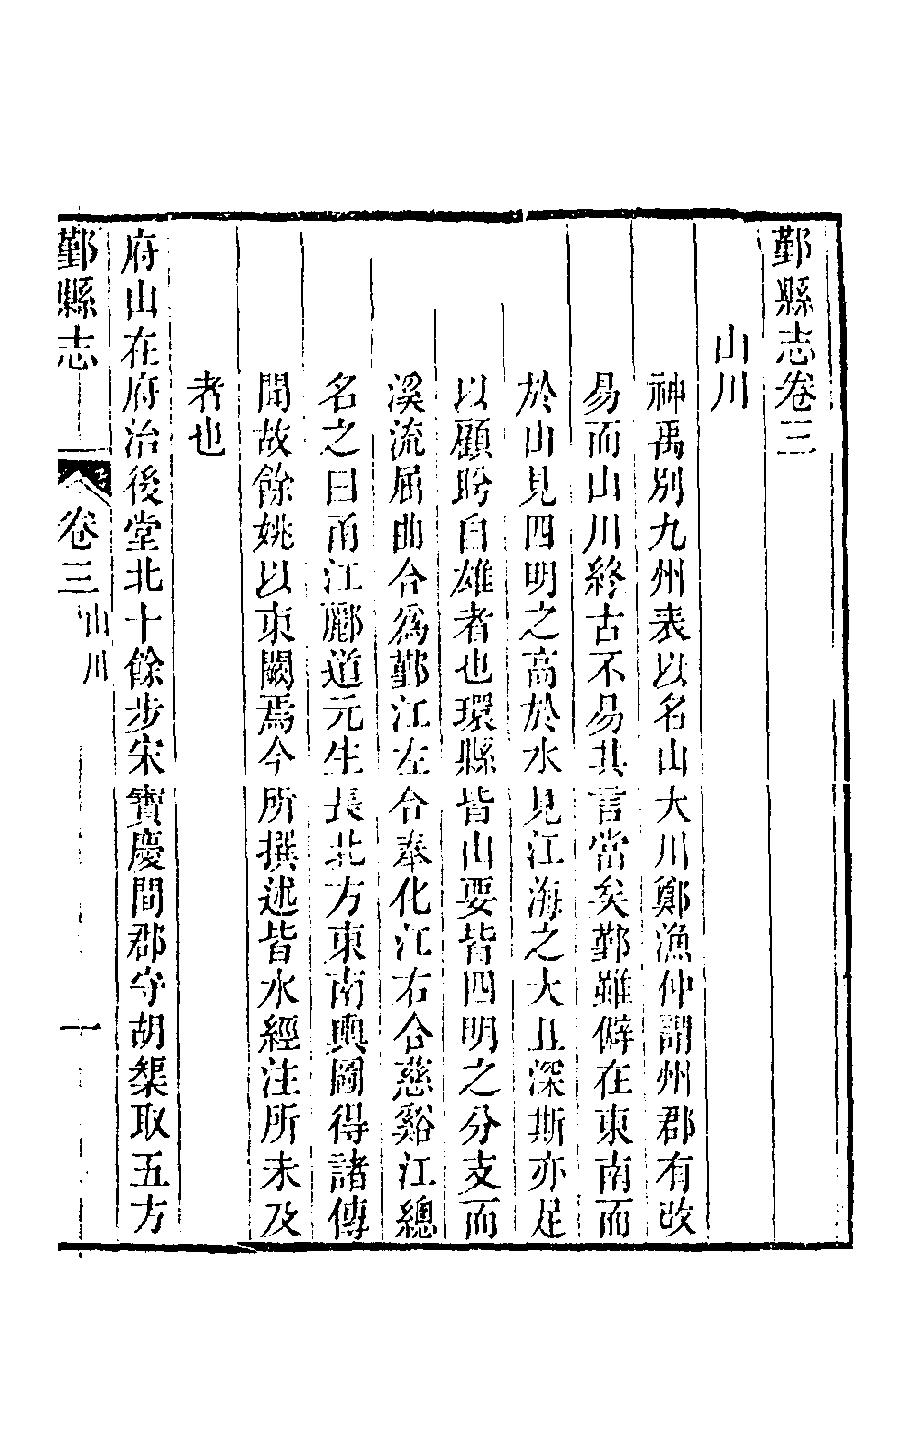 鄞縣志卷三
山川
神禹別九州表以名山大川鄭漁仲謂州郡有改
易而山川終古不易其言當矣鄞雖僻在東南而
於山見四明之高於水見江海之大且深斯亦足
以顧盻自雄者也環縣皆山要皆四明之分支而
溪流屈曲合爲鄞江左合奉化江右合慈谿江總
名之曰甬江酈道元生長北方東南輿圖得諸傳
聞故餘姚以東闕焉今所撰述皆水經注所未及
者也
府山在府治後堂北十餘步宋寶慶間郡守胡榘取五方
鄞縣志
卷三
山川
一